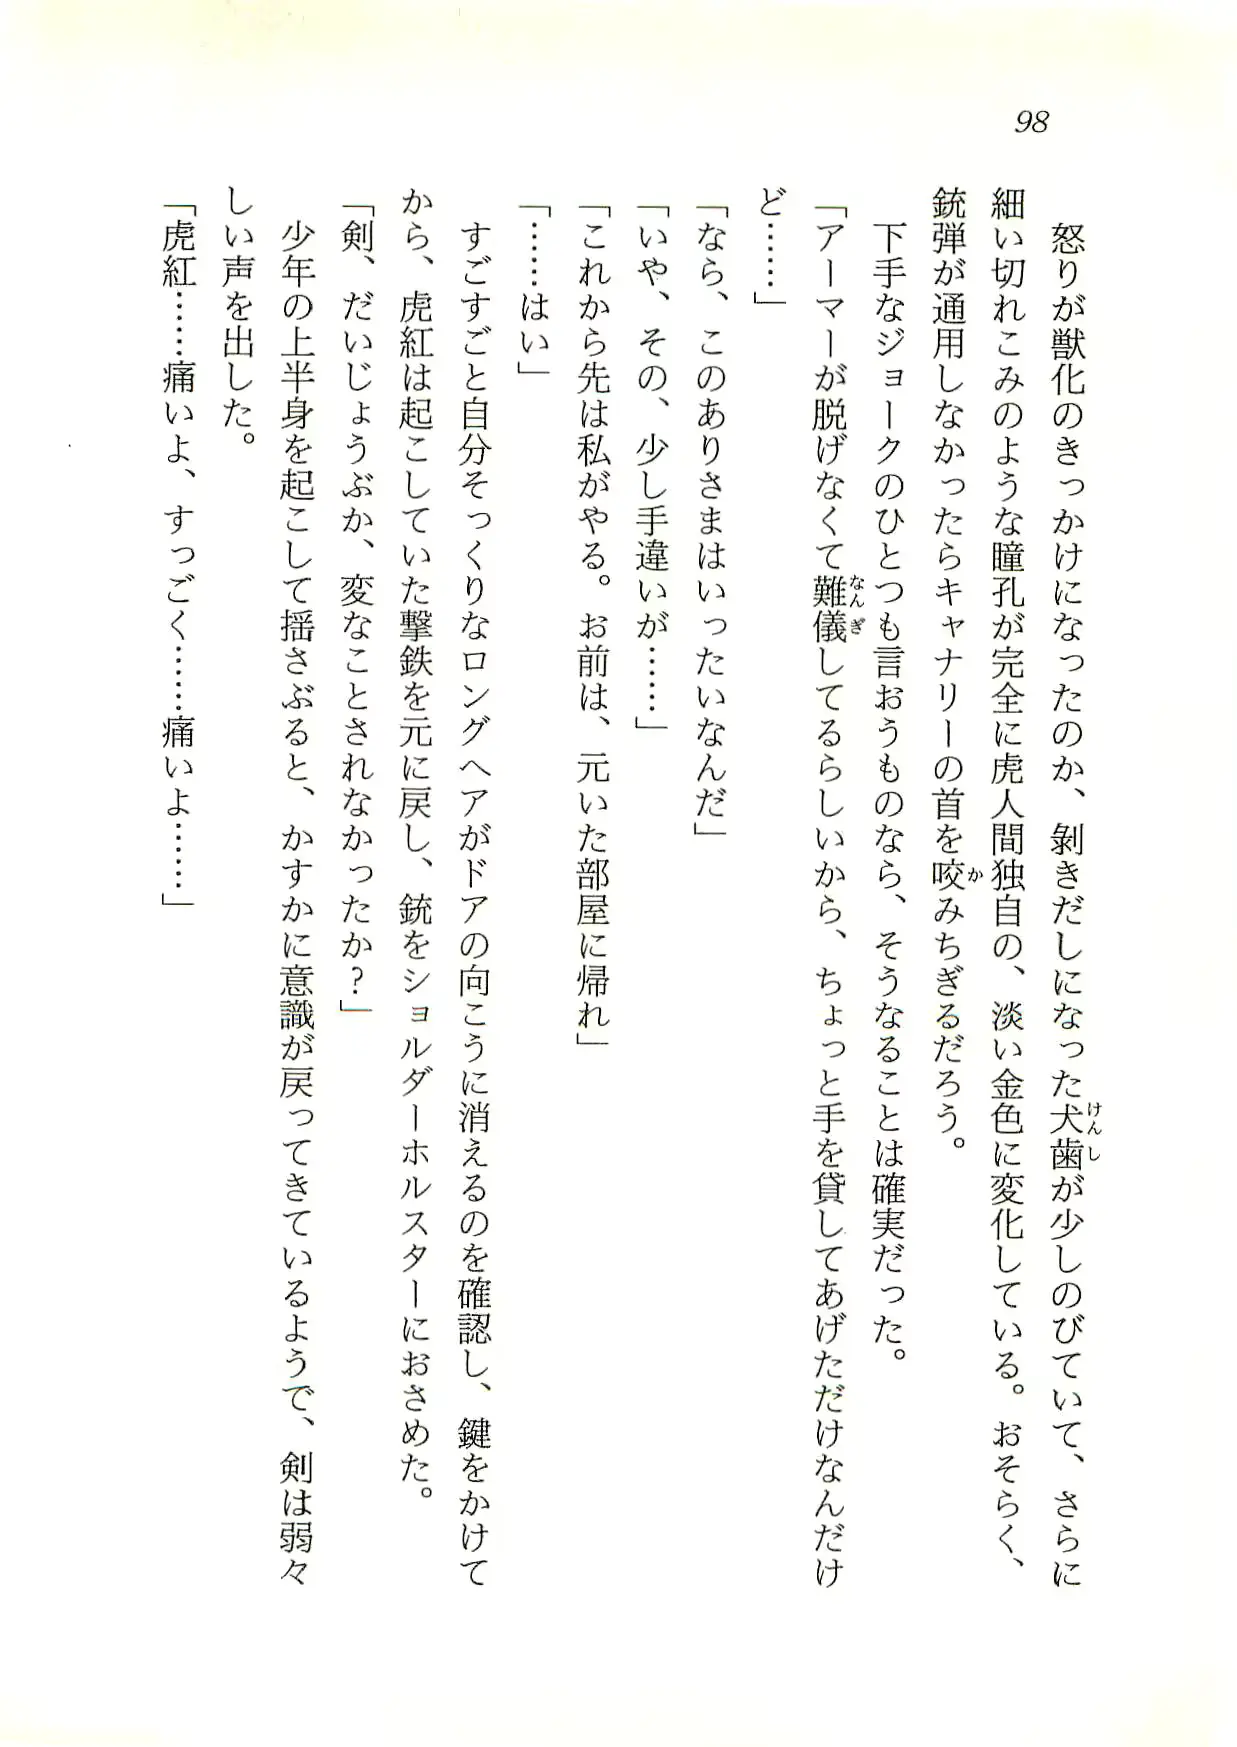 98
怒りが獣化のきっかけになったのか、剝きだしになった犬歯が少しのびていて、さらに
細い切れこみのような瞳孔が完全に虎人間独自の、淡い金色に変化している。おそらく、
銃弾が通用しなかったらキャナリーの首を咬みちぎるだろう。
下手なジョークのひとつも言おうものなら、そうなることは確実だった。
「アーマーが脱げなくて難儀してるらしいから、ちょっと手を貸してあげただけなんだけ
ど……」
「なら、このありさまはいったいなんだ」
「いや、その、少し手違いが……」
「これから先は私がやる。お前は、元いた部屋に帰れ」
「……はい」
すごすごと自分そっくりなロングヘアがドアの向こうに消えるのを確認し、鍵をかけて
から、虎紅は起こしていた撃鉄を元に戻し、銃をショルダーホルスターにおさめた。
「剣、だいじょうぶか、変なことされなかったか？」
少年の上半身を起こして揺さぶると、かすかに意識が戻ってきているようで、剣は弱々
しい声を出した。
「虎紅……痛いよ、すっごく……痛いよ……」